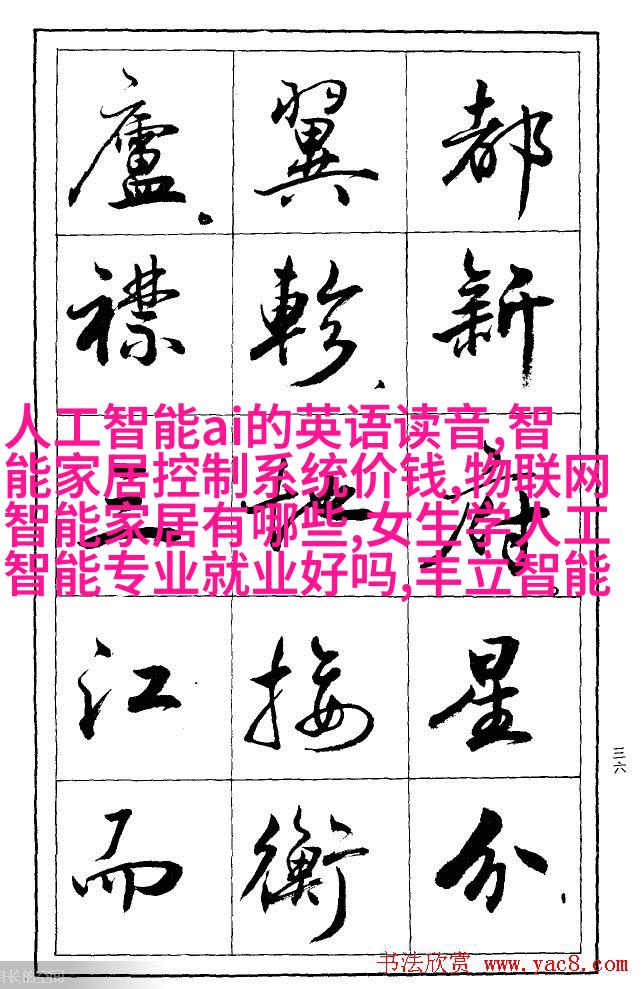 都新府。星分、
翼軫、地接衡
廬。襟三江而
人工智能ai的英语读音,智
能家居控制系统价钱,物联网
智能家居有哪些,女生学人工
智能专业就业好吗,丰立智能
三六
书法欣赏 www.yac8.com
长的空间